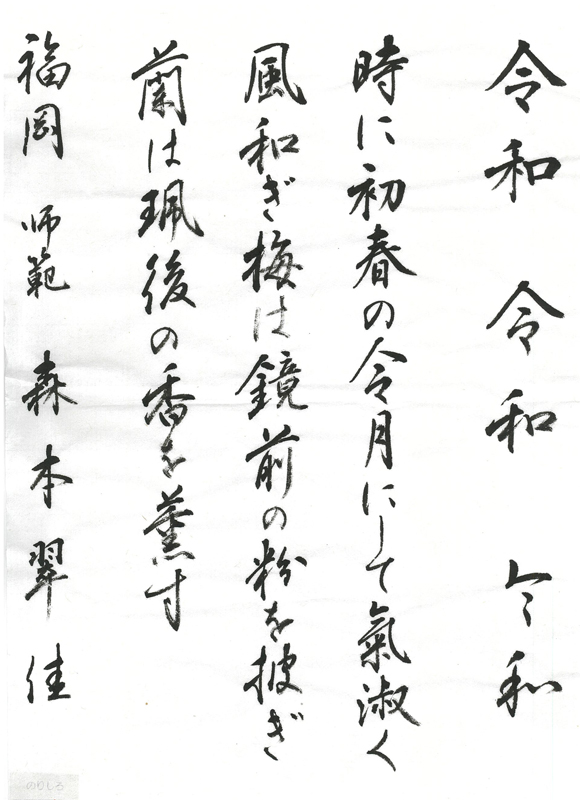 令和 令和 令和
時に初春の令月にして氣淑く
風和ぎ梅は鏡前の粉を披ぎ
蘭は珮後の香を薫す
福岡 師範 森本翠佳
のりしろ